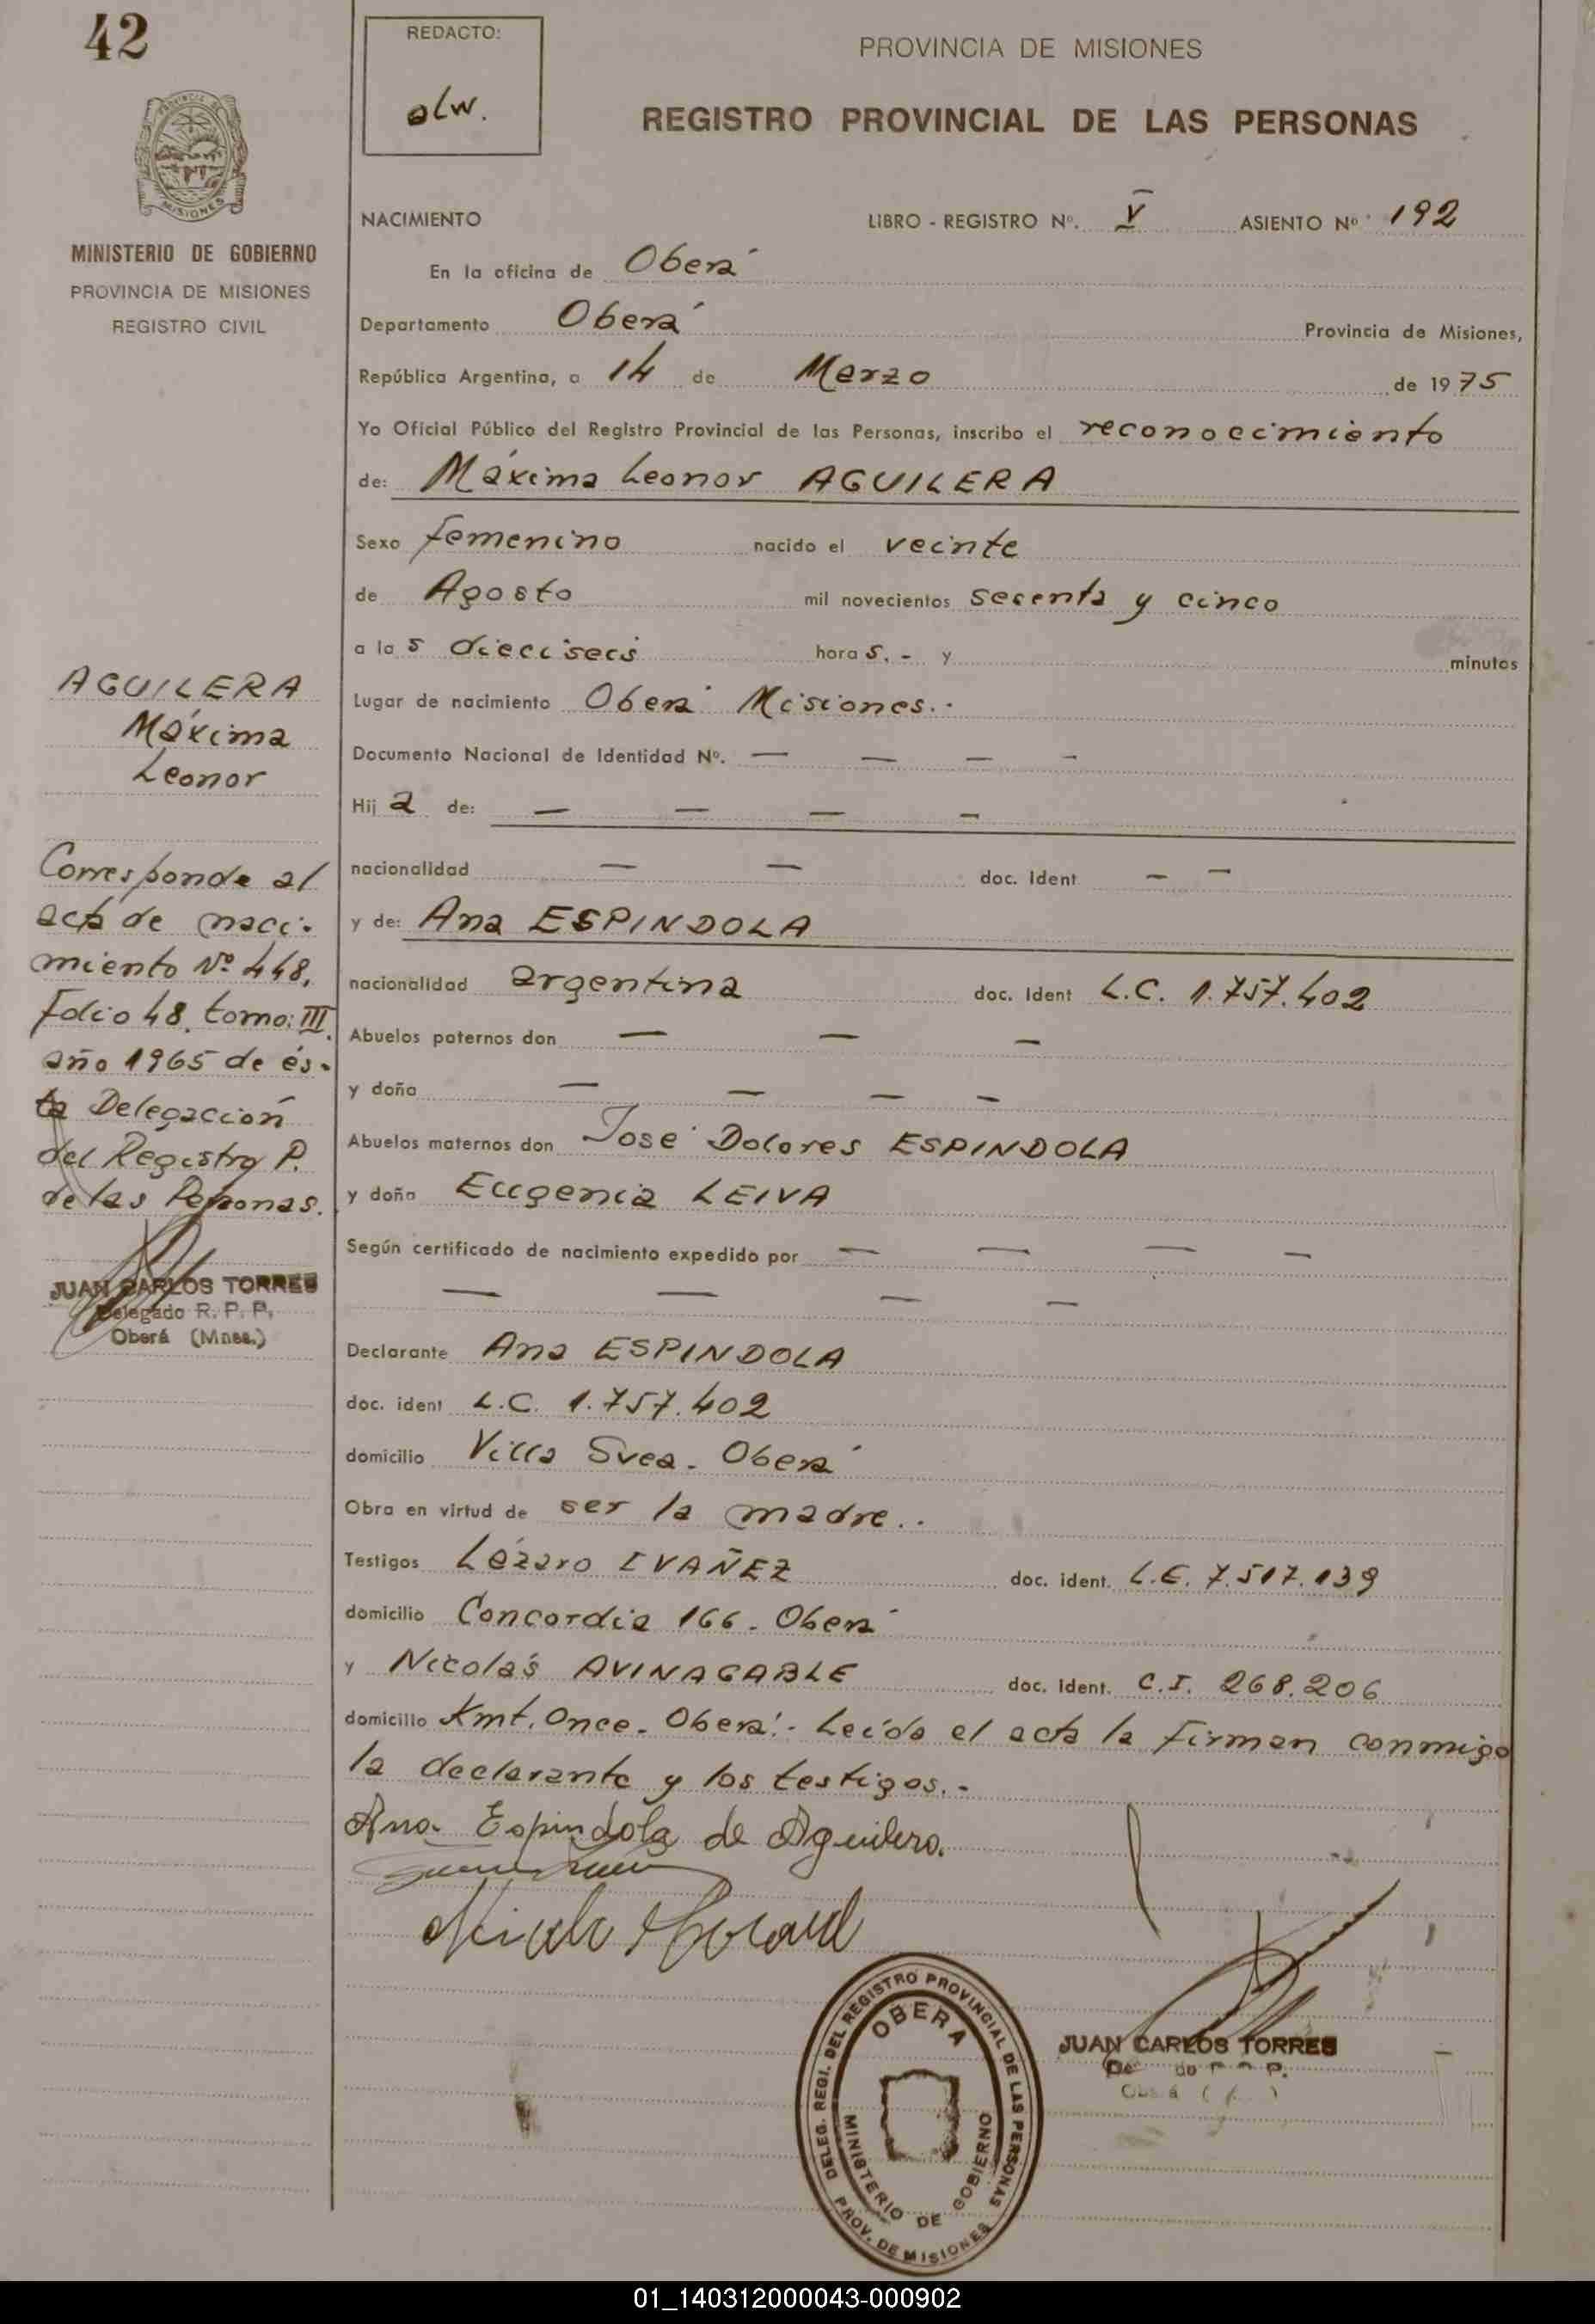 42
REDACTO:
alw.
PROVINCIA DE MISIONES
REGISTRO PROVINCIAL DE LAS PERSONAS
PROVINCIA DE
MISIONES
MINISTERIO DE GOBIERNO
PROVINCIA DE MISIONES
REGISTRO CIVIL
NACIMIENTO LIBRO - REGISTRO Nº. V ASIENTO Nº 192
En la oficina de Oberá
Departamento Oberá Provincia de Misiones,
República Argentina, a 14 de Marzo de 1975
Yo Oficial Público del Registro Provincial de las Personas, inscribo el reconocimiento
de: Máxima Leonor AGUILERA
Sexo femenino nacido el veinte
de Agosto mil novecientos sesenta y cinco
a las dieciseis horas.- y minutos
Lugar de nacimiento Oberá Misiones..
Documento Nacional de Identidad Nº. — — — -
Hija de: — — — —
nacionalidad — — doc. Ident — —
y de: Ana ESPINDOLA
nacionalidad argentina doc. Ident L.C. 1.757.402
Abuelos paternos don — — —
y doña — — — —
Abuelos maternos don José Dolores ESPINDOLA
y doña Eugenia LEIVA
Según certificado de nacimiento expedido por — — — —
— — — —
Declarante Ana ESPINDOLA
doc. ident L.C. 1.757.402
domicilio Villa Svea - Oberá
Obra en virtud de ser la madre..
Testigos Lázaro IVAÑEZ doc. ident. L.E. 7.517.139
domicilio Concordia 166 - Oberá
y Nicolás AVINAGABLE doc. Ident. C.I. 268.206
domicilio Kmt. Once - Oberá.- Leída el acta la firman conmigo
la declarante y los testigos.-
Ana Espindola de Aguilera.
AGUILERA
Máxima
Leonor
Corresponde al
acta de naci-
miento Nº 448,
Folio 48, tomo: III,
año 1965 de és-
ta Delegación
del Registro P.
de las Personas.
JUAN CARLOS TORRES
Delegado R. P. P.
Oberá (Mnes.)
DELEG. REGI. DEL REGISTRO PROVINCIAL DE LAS PERSONAS
OBERA
MINISTERIO DE GOBIERNO
PROV. DE MISIONES
JUAN CARLOS TORRES
01_140312000043-000902